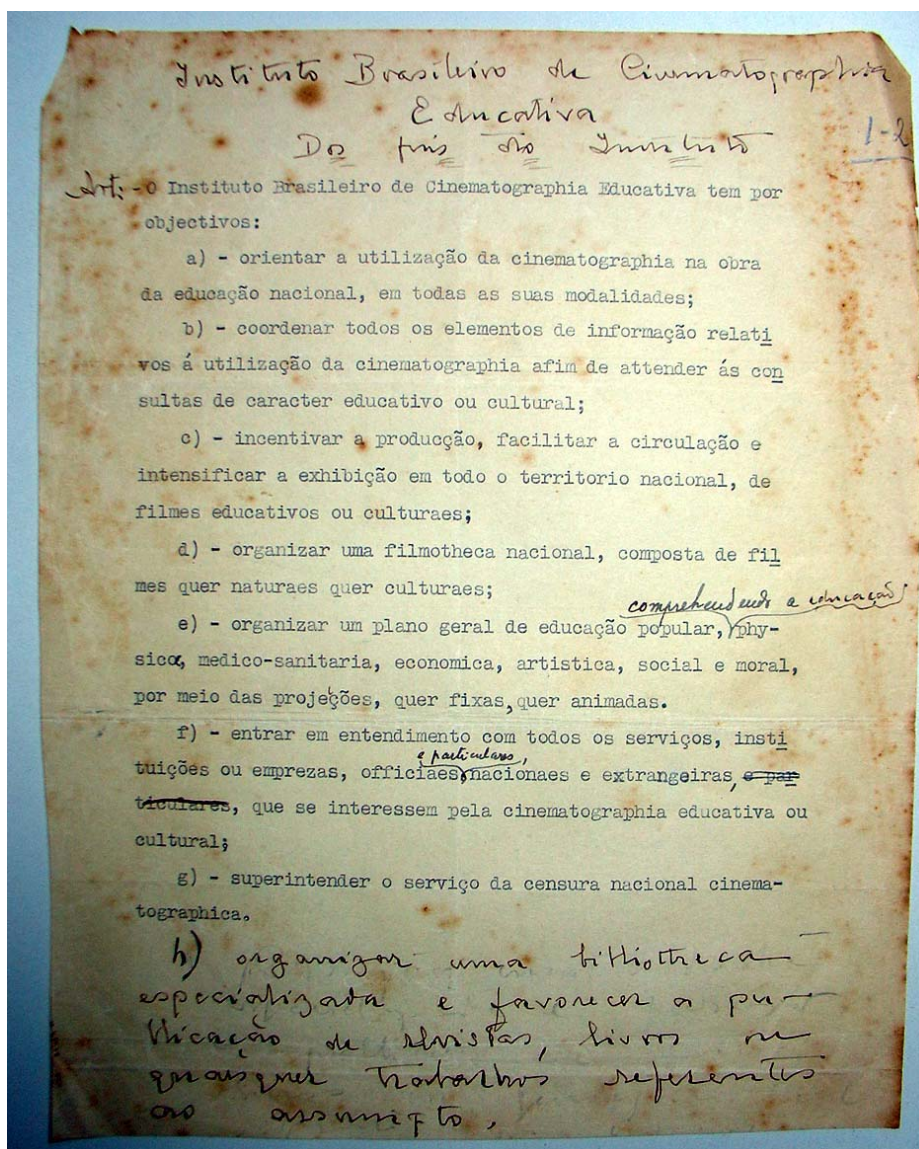 Instituto Brasileiro de Cinematographia
Educativa
Dos fins do Instituto
1-2
Art: - O Instituto Brasileiro de Cinematographia Educativa tem por
objectivos:
a) - orientar a utilização da cinematographia na obra
da educação nacional, em todas as suas modalidades;
b) - coordenar todos os elementos de informação relati
vos á utilização da cinematographia afim de attender ás con
sultas de caracter educativo ou cultural;
c) - incentivar a producção, facilitar a circulação e
intensificar a exhibição em todo o territorio nacional, de
filmes educativos ou culturaes;
d) - organizar uma filmotheca nacional, composta de fil
mes quer naturaes quer culturaes;
comprehendendo a educação
e) - organizar um plano geral de educação popular, phy-
sica, medico-sanitaria, economica, artistica, social e moral,
por meio das projeções, quer fixas, quer animadas.
f) - entrar em entendimento com todos os serviços, insti
e particulares,
tuições ou emprezas, officiaes nacionaes e extrangeiras, e par
ticulares, que se interessem pela cinematographia educativa ou
cultural;
g) - superintender o serviço da censura nacional cinema-
tographica.
h) organizar uma bibliotheca
especializada e favorecer a pu-
blicação de revistas, livros ou
quaesquer trabalhos referentes
ao assumpto.